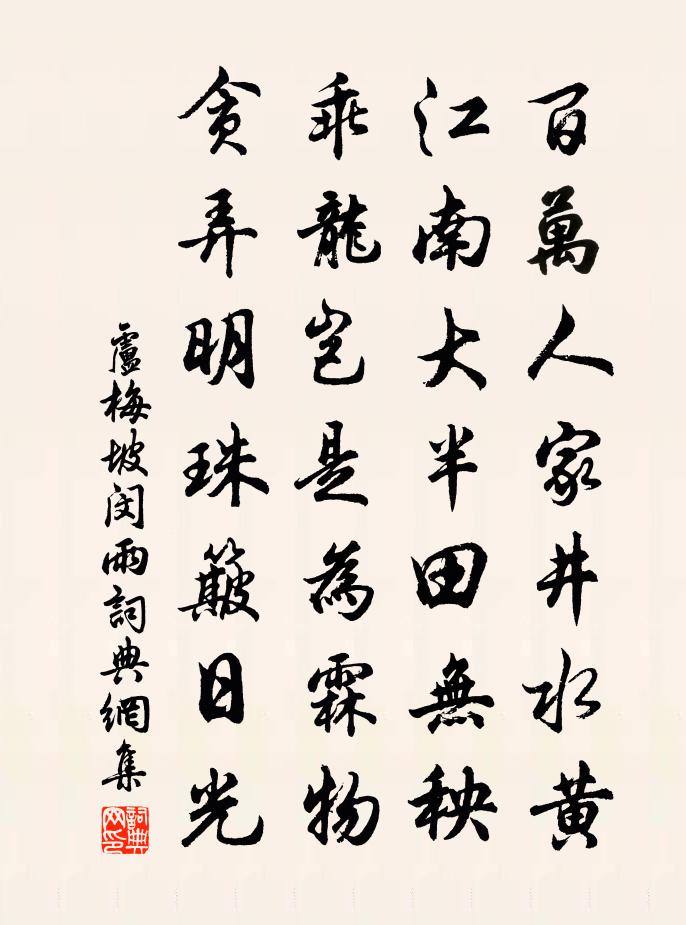 百萬人家井水黃
江南大半田無秧
乖龍豈是為霖物
貪弄明珠簸日光
盧梅坡閔雨詞典網集
詞典網印